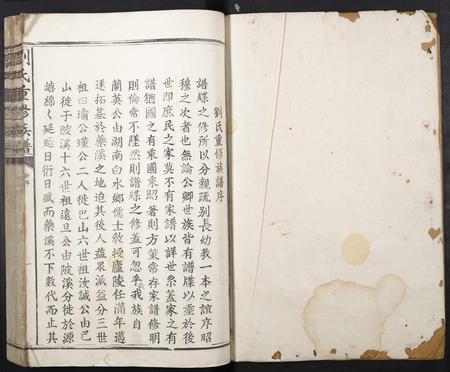 劉氏重修族譜序
譜牒之修所以分親疏別長幼教一本之誼序昭
穆之次者也無論公卿世族皆有譜牒以垂於後
世即庶民之家莫不有家譜以詳世系蓋家之有
譜猶國之有乘國乘昭著則方策常存家譜修明
則倫常不墜然則譜牒之修蓋可忽乎我族自
蘭英公由湖南白水鄉儒士教授廬陵任滿年邁
遂拓基於藥溪之地迨其後人盡眾派益分三世
祖曰瑜公瑾公二人徙巴山六世祖汝誠公由巴
山徙于陂溪十六世祖遠旦公由陂溪分徙於源
塘綿〱延延日衍日盛而藥溪不下數代而止其
劉氏重修族譜